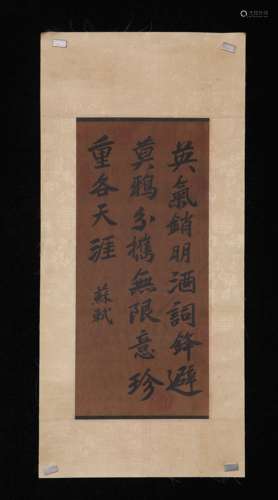 英氣銷明酒詞鋒避
莫鴉分攜無限意珍
重各天涯
蘇軾